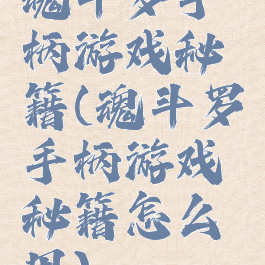 魂斗罗手
柄游戏秘
籍(魂斗罗
手柄游戏
秘籍怎么
用)